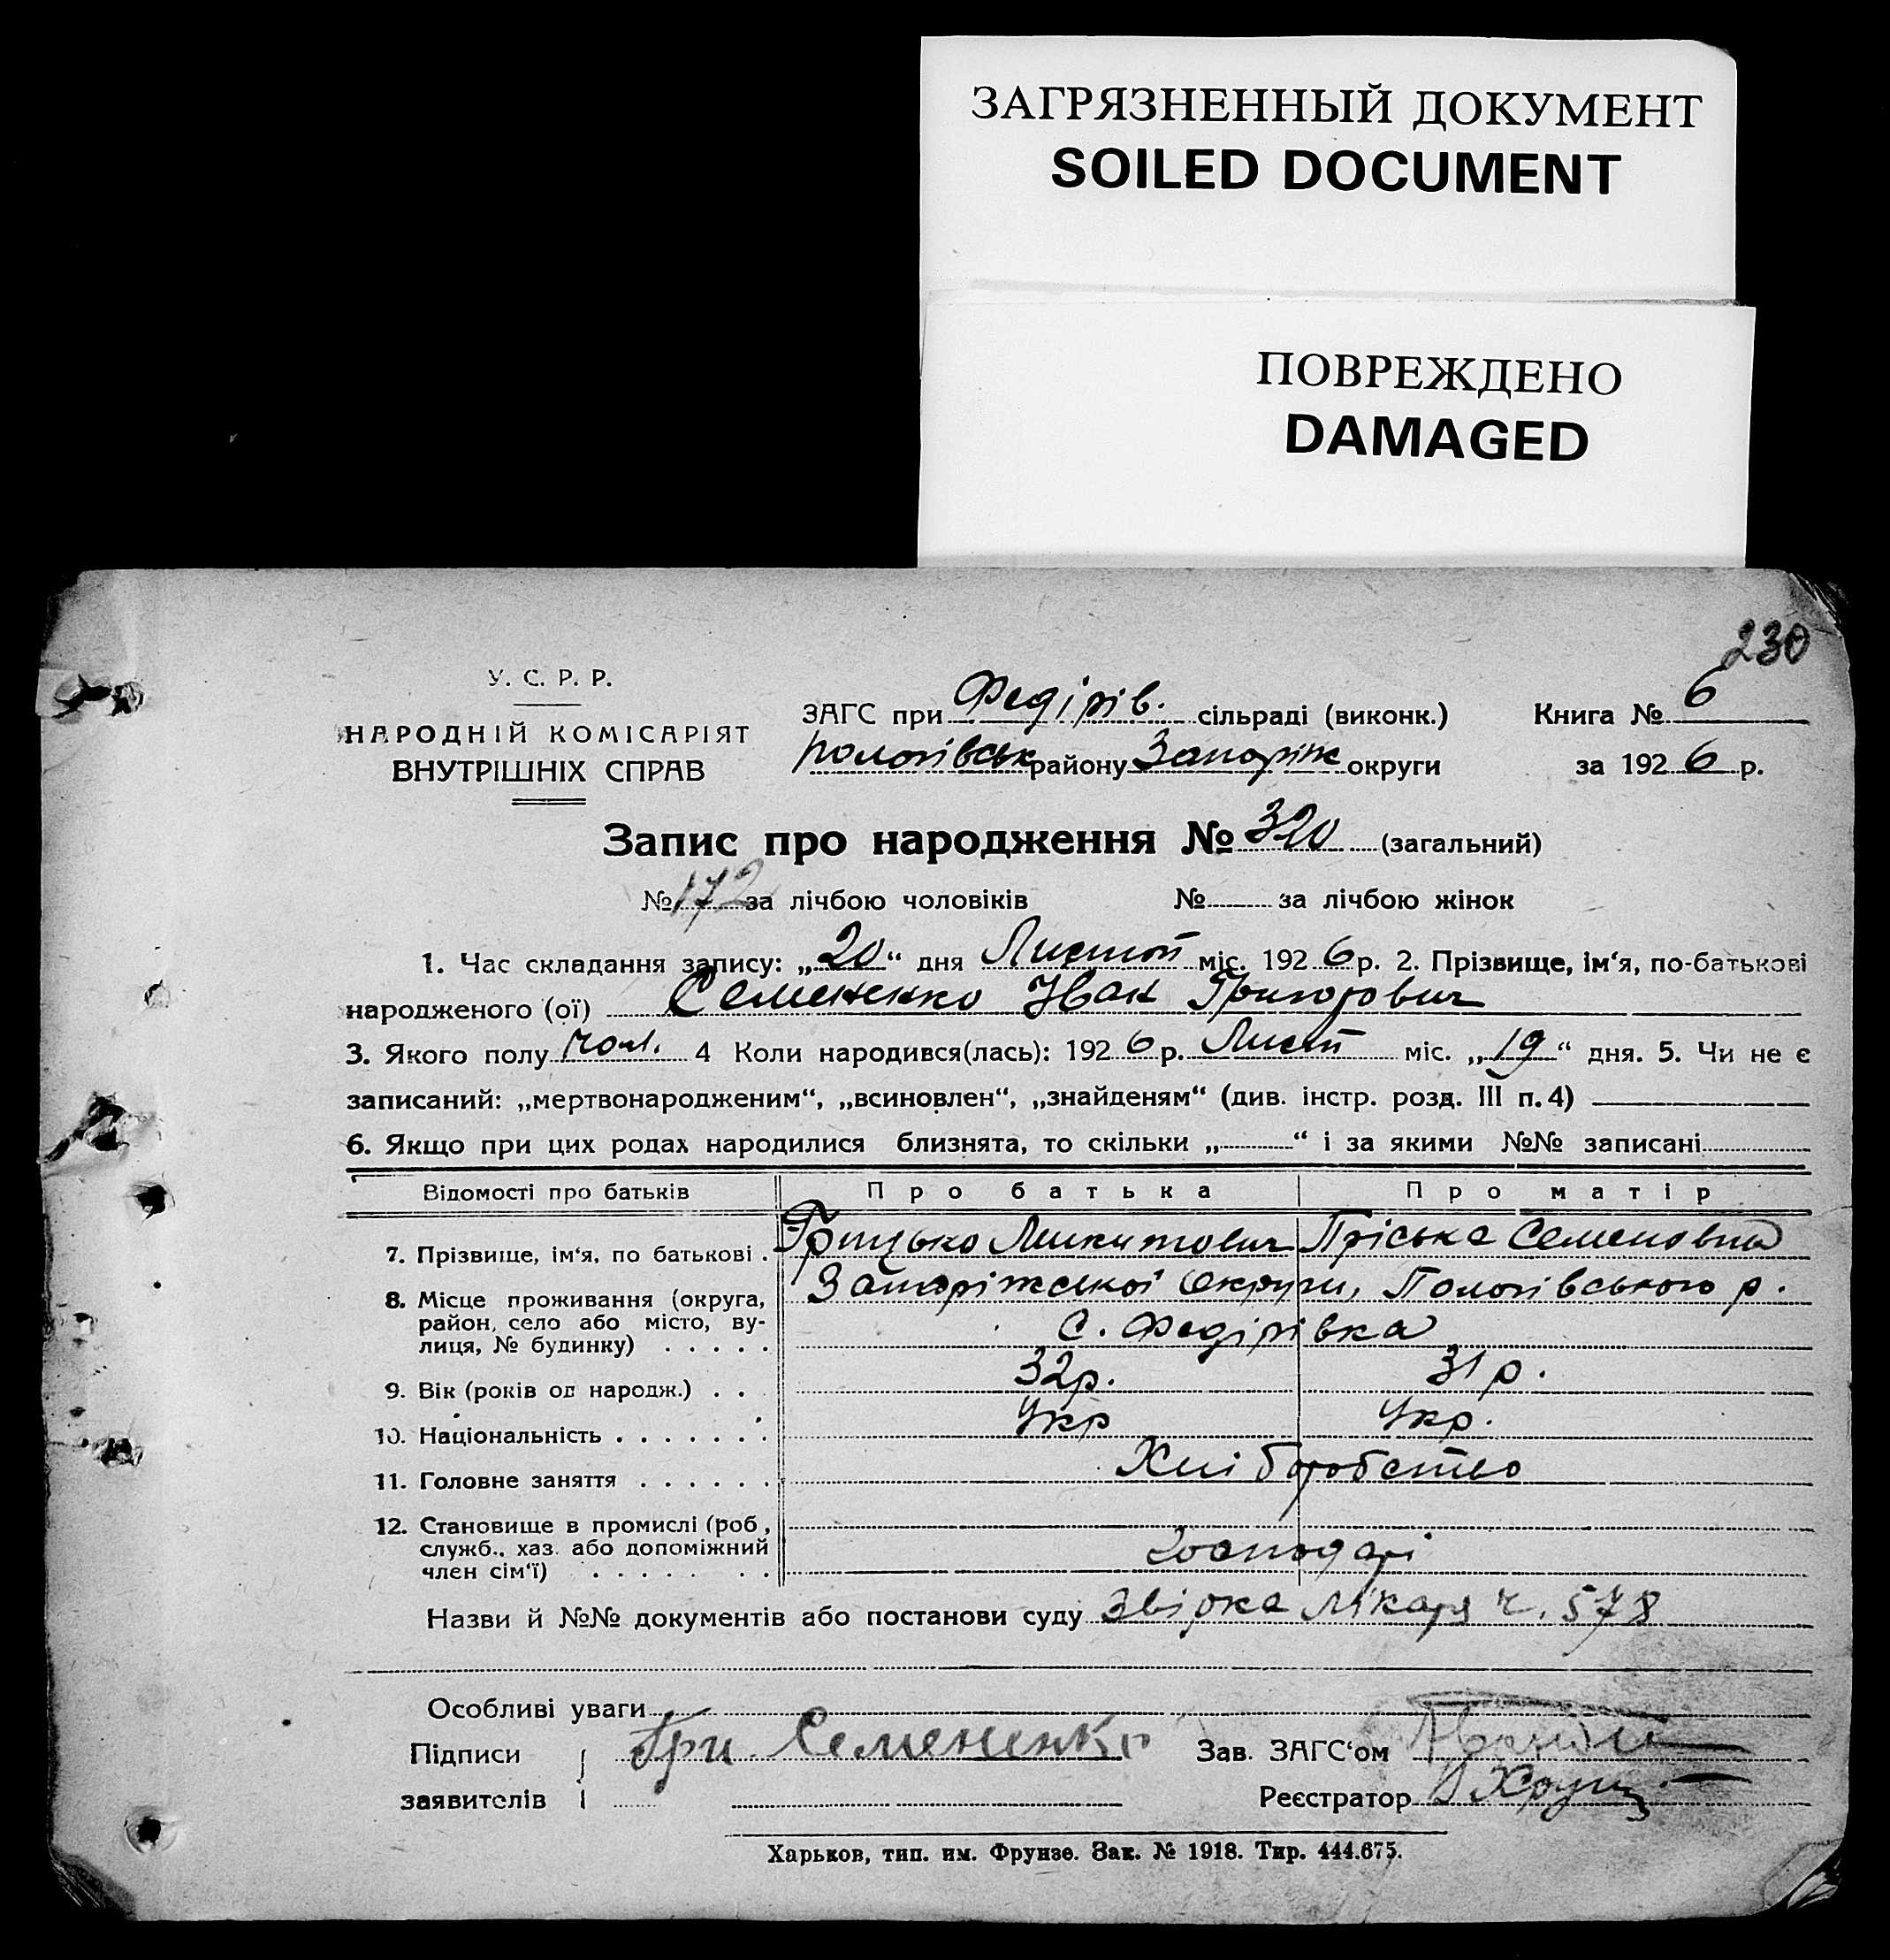 ЗАГРЯЗНЕННЫЙ ДОКУМЕНТ
SOILED DOCUMENT
ПОВРЕЖДЕНО
DAMAGED
230
У. С. Р. Р.
НАРОДНІЙ КОМІСАРІЯТ
ВНУТРІШНІХ СПРАВ
ЗАГС при Федірів. сільраді (виконк.) Книга № 6
Пологівськ району Запоріж округи за 1926 р.
Запис про народження № 320 (загальний)
№ 172 за лічбою чоловіків № за лічбою жінок
1. Час складання запису: „20“ дня Листоп міс. 1926 р. 2. Прізвище, ім‘я, по-батькові
народженого (ої) Семененко Іван Григорович
3. Якого полу чол. 4 Коли народився(лась): 1926 р. Лист міс. „19“ дня. 5. Чи не є
записаний: „мертвонародженим“, „всиновлен“, „знайденям“ (див. інстр. розд. III п. 4)
6. Якщо при цих родах народилися близнята, то скільки „ “ і за якими №№ записані
Відомості про батьків Про батька Про матір
7. Прізвище, ім‘я, по батькові . Грицько Микитович Пріська Семеновна
8. Місце проживання (округа, Запоріжської округи, Пологівського р.
район, село або місто, ву- с. Федірівка
лиця, № будинку) . . . . .
9. Вік (років од народж.) . . 32р. 31 р.
10. Національність . . . . . . . Укр Укр.
11. Головне заняття . . . . . . Хліборобство
12. Становище в промислі (роб,
служб., хаз. або допоміжний господарі
член сім‘ї) . . . . . . .
Назви й №№ документів або постанови суду Звірка лікаря ч. 578
Особливі уваги
Підписи Гри Семененко Зав. ЗАГС‘ом
заявителів Реєстратор
Харьков, тип. им. Фрунзе. Зак. № 1918. Тир. 444.675.